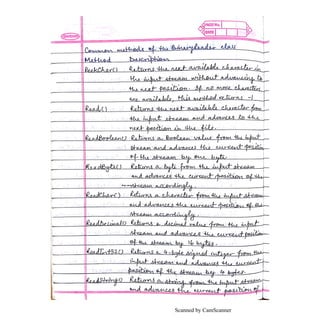 PAGE No.
DATE
Common methods of the BinaryReader class
Method Description
PeekChar() Returns the next available character in
the input stream without advancing to
the next position. If no more characters
are available, this method returns -1
Read() Returns the next available character from
the input stream and advances to the
next position in the file.
ReadBoolean() Returns a boolean value from the input
stream and advances the current position
of the stream by one byte
ReadByte() Returns a byte from the input stream
and advances the current position of the
stream accordingly.
ReadChar() Returns a character from the input stream
and advances the current position of the
stream accordingly.
ReadDecimal() Returns a decimal value from the input
stream and advances the current position
of the stream by 16 bytes.
ReadInt32() Returns a 4-byte signed integer from the
input stream and advances the current
position of the stream by 4 bytes
ReadString() Returns a string from the input stream
and advances the current position of
Scanned by CamScanner